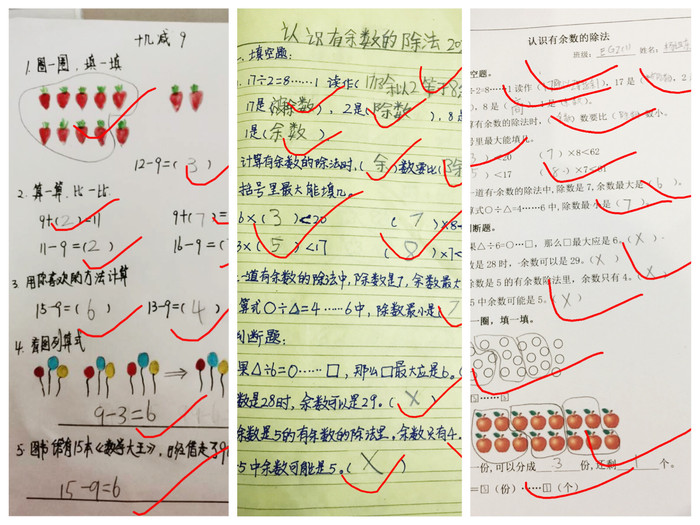 十几减9
1.圈一圈,填一填
12-9=(3)
2.算一算,比一比
9+(2)=11 9+(7)=
11-9=(2) 16-9=(
3 用你喜欢的方法计算
15-9=(6) 13-9=(4)
4.看图列算式
9-3=6
5.图书馆有15本《数学大王》,
15-9=6
认识有余数的除法
填空题:
17÷2=8……1 读作(17除以2等于8
17是( 除数),2是(除数),8
1是(余数)
计算有余数的除法时,(余)数要比(除
括号里最大能填几。
6×(3)<20 (7)×8<
3×(5)<17 (8)×7<
一道有余数的除法中,除数是7,余数最大
算式○÷△=4……6中,除数最小是(7
判断题:
果△÷6=○……□,那么□最大应是6。(
数是28时,余数可以是29。(X)
余数是5的有余数的除法里,余数只有4。
5中余数可能是5。(X)
认识有余数的除法
班级: 姓名:
空题。
÷2=8……1读作( ),17是( ),2
),8是(商),1是(
算有余数的除法时,( )数要比( )数小。
号里最大能填几。
)<20 (7)×8<62
)<17 (8)×7<
一道有余数的除法中,除数是7,余数最大是(6)。
算式○÷△=4……6中,除数最小是(7)。
断题。
果△÷6=○…□,那么□最大应是6。(X)
数是28时,余数可以是29。(X)
数是5的有余数除法里,余数只有4。(X)
5中余数可能是5。(X)
一圈,填一填。
份,可以分成 3 份,还剩 1 个。
(份)……(个)